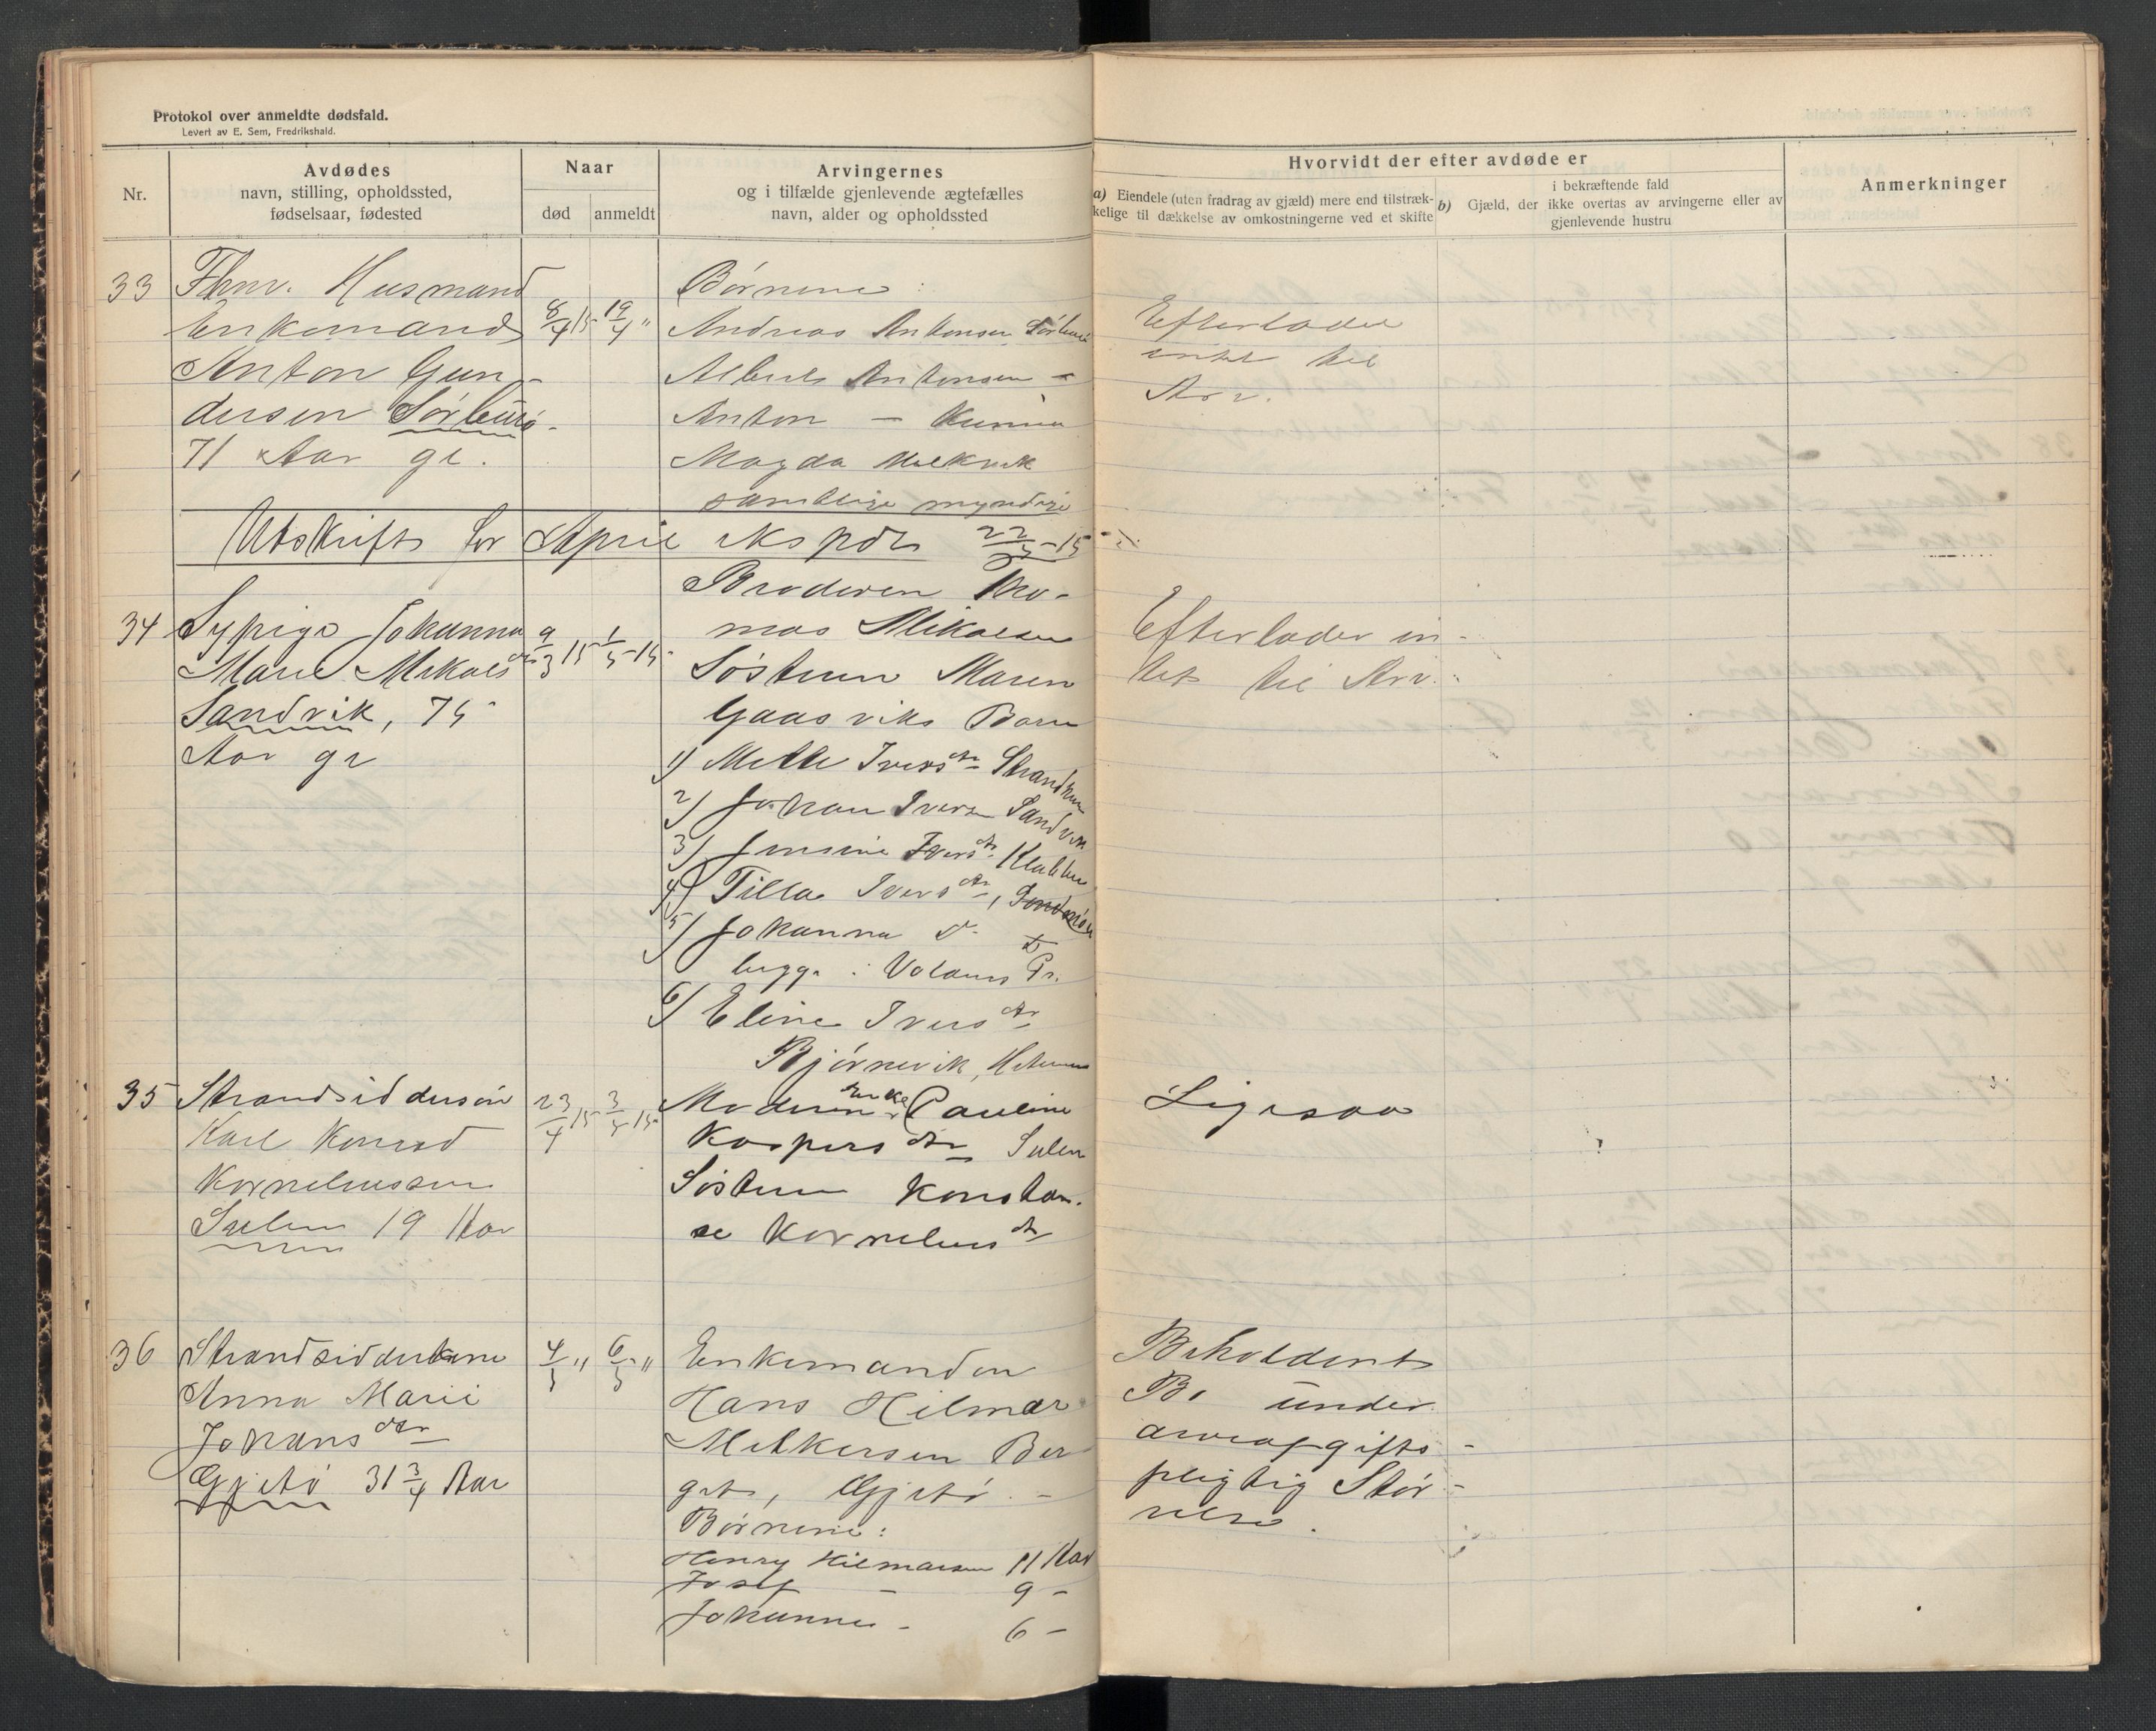 Protokol over anmeldte dødsfald.
Levert av E. Sem, Fredrikshald.
Nr.
Avdødes
navn, stilling, opholdssted,
fødselsaar, fødested
Naar
død
anmeldt
Arvingernes
og i tilfælde gjenlevende ægtefælles
navn, alder og opholdssted
Hvorvidt der efter avdøde er
a) Eiendele (uten fradrag av gjæld) mere end tilstræk-
kelige til dækkelse av omkostningerne ved et skifte
i bekræftende fald
b) Gjæld, der ikke overtas av arvingerne eller av
gjenlevende hustru
Anmerkninger
33
Fhnv. Husmand
Enkemand
Anton Gun-
dersen
71 Aar gl.
8/4 15
19/4 "
Børnene:
Andreas Antonsen
Albert Antonsen -
Anton -
Magda
samtlige myndige
Efterlader
intet til
Arv.
Utskrift for April ekspdr 22/5-15
34
Sypige Johanna
Marie Mikalsdtr
Sandvik, 75
Aar gl
9/3 15
1/5-15
Broderen Tho-
mas Mikalsen
Søsteren Maren
Gaasviks Børn
1) Mette Iversdtr
2) Johan Iversen Sandvik
3) Jensine Iversdtr
4) Tilla Iversdtr,
5) Johanna
begge i
6) Eline Iversdtr
Bjørnevik,
Efterlader in-
tet til Arv.
35
Strandsiddersøn
Karl Konrad
Korneliussen
Sulen 19 Aar
23/4 15
3/5 15
Moderen Enke Pauline
Kaspersdtr Sulen
Søsteren Konstan-
se Korneliusdtr
Ligesaa
36
Strandsidderkone
Anna Marie
Johansdtr
Gjetø 31 3/4 Aar
4/5 "
6/5 "
Enkemanden
Hans Hilmar
Melkersen Ber
get, Gjetø. -
Børnene:
Henry Hilmarsen 11 Aar
Josef - 9 -
Johannes - 6 -
Beholdent
Bo under
arveafgifts-
pligtig Stør-
relse.